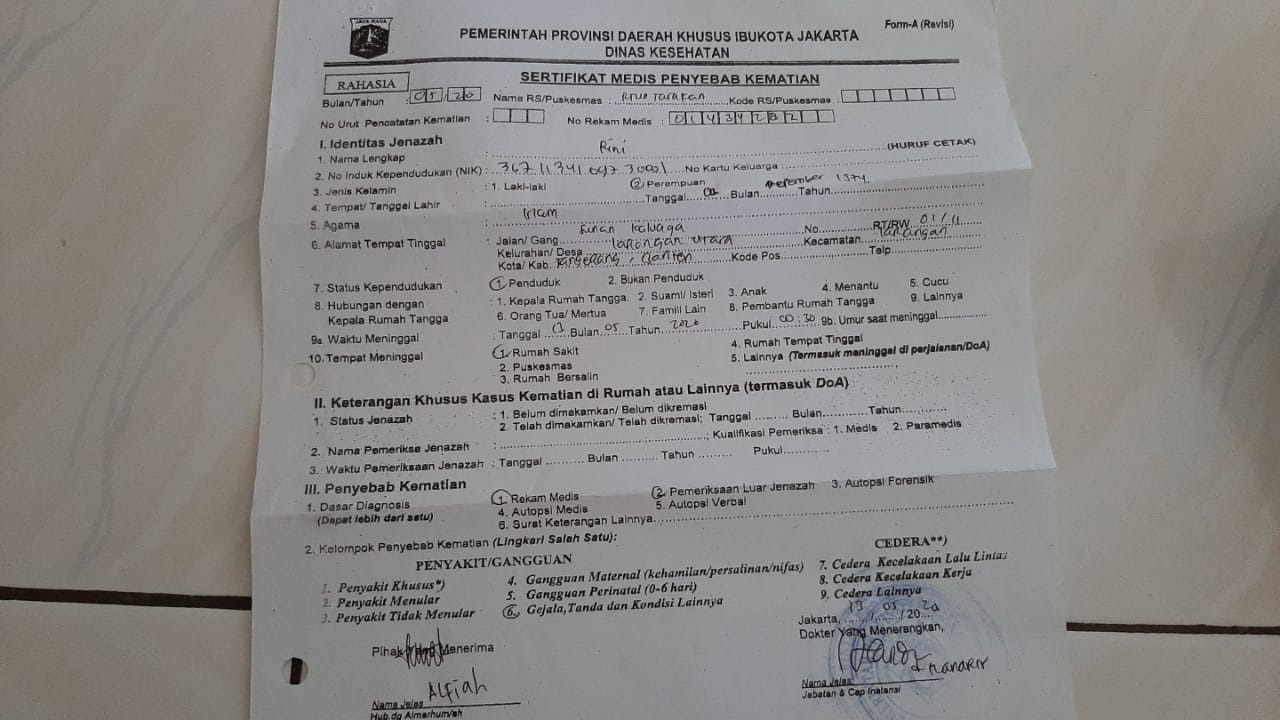 JAYA RAYA
Form-A (Revisi)
PEMERINTAH PROVINSI DAERAH KHUSUS IBUKOTA JAKARTA
DINAS KESEHATAN
RAHASIA
SERTIFIKAT MEDIS PENYEBAB KEMATIAN
Bulan/Tahun : 05/20 Nama RS/Puskesmas : Tarakan Kode RS/Puskesmas :
No Urut Pencatatan Kematian : No Rekam Medis : 01434282
I. Identitas Jenazah
1. Nama Lengkap : Rini (HURUF CETAK)
2. No Induk Kependudukan (NIK) : No Kartu Keluarga :
3. Jenis Kelamin : 1. Laki-laki 2 Perempuan
4. Tempat/ Tanggal Lahir : Tanggal Bulan Tahun
5. Agama : Islam
6. Alamat Tempat Tinggal : Jalan/ Gang No. RT/RW 01/11
Kelurahan/ Desa Larangan Utara Kecamatan Larangan
Kota/ Kab. Tangerang, Banten Kode Pos Telp
7. Status Kependudukan : 1 Penduduk 2. Bukan Penduduk
8. Hubungan dengan Kepala Rumah Tangga : 1. Kepala Rumah Tangga 2. Suami/ Isteri 3. Anak 4. Menantu 5. Cucu
6. Orang Tua/ Mertua 7. Famili Lain 8. Pembantu Rumah Tangga 9. Lainnya
9a. Waktu Meninggal : Tanggal 01 Bulan 05 Tahun 2020 Pukul 00:30 9b. Umur saat meninggal
10. Tempat Meninggal : 1 Rumah Sakit 4. Rumah Tempat Tinggal
2. Puskesmas 5. Lainnya (Termasuk meninggal di perjalanan/DoA)
3. Rumah Bersalin
II. Keterangan Khusus Kasus Kematian di Rumah atau Lainnya (termasuk DoA)
1. Status Jenazah : 1. Belum dimakamkan/ Belum dikremasi
2. Telah dimakamkan/ Telah dikremasi; Tanggal Bulan Tahun
2. Nama Pemeriksa Jenazah : ; Kualifikasi Pemeriksa : 1. Medis 2. Paramedis
3. Waktu Pemeriksaan Jenazah : Tanggal Bulan Tahun Pukul
III. Penyebab Kematian
1. Dasar Diagnosis : 1 Rekam Medis 2 Pemeriksaan Luar Jenazah 3. Autopsi Forensik
(Dapat lebih dari satu) 4. Autopsi Medis 5. Autopsi Verbal
6. Surat Keterangan Lainnya
2. Kelompok Penyebab Kematian (Lingkari Salah Satu):
PENYAKIT/GANGGUAN CEDERA**)
1. Penyakit Khusus*) 4. Gangguan Maternal (kehamilan/persalinan/nifas) 7. Cedera Kecelakaan Lalu Lintas
2. Penyakit Menular 5. Gangguan Perinatal (0-6 hari) 8. Cedera Kecelakaan Kerja
3. Penyakit Tidak Menular 6. Gejala,Tanda dan Kondisi Lainnya 9. Cedera Lainnya
Jakarta, 13/05/2020
Pihak Yang Menerima Dokter Yang Menerangkan,
Alfiah
Nama Jelas Nama Jelas:
Hub.dg Almarhum/ah Jabatan & Cap Instansi